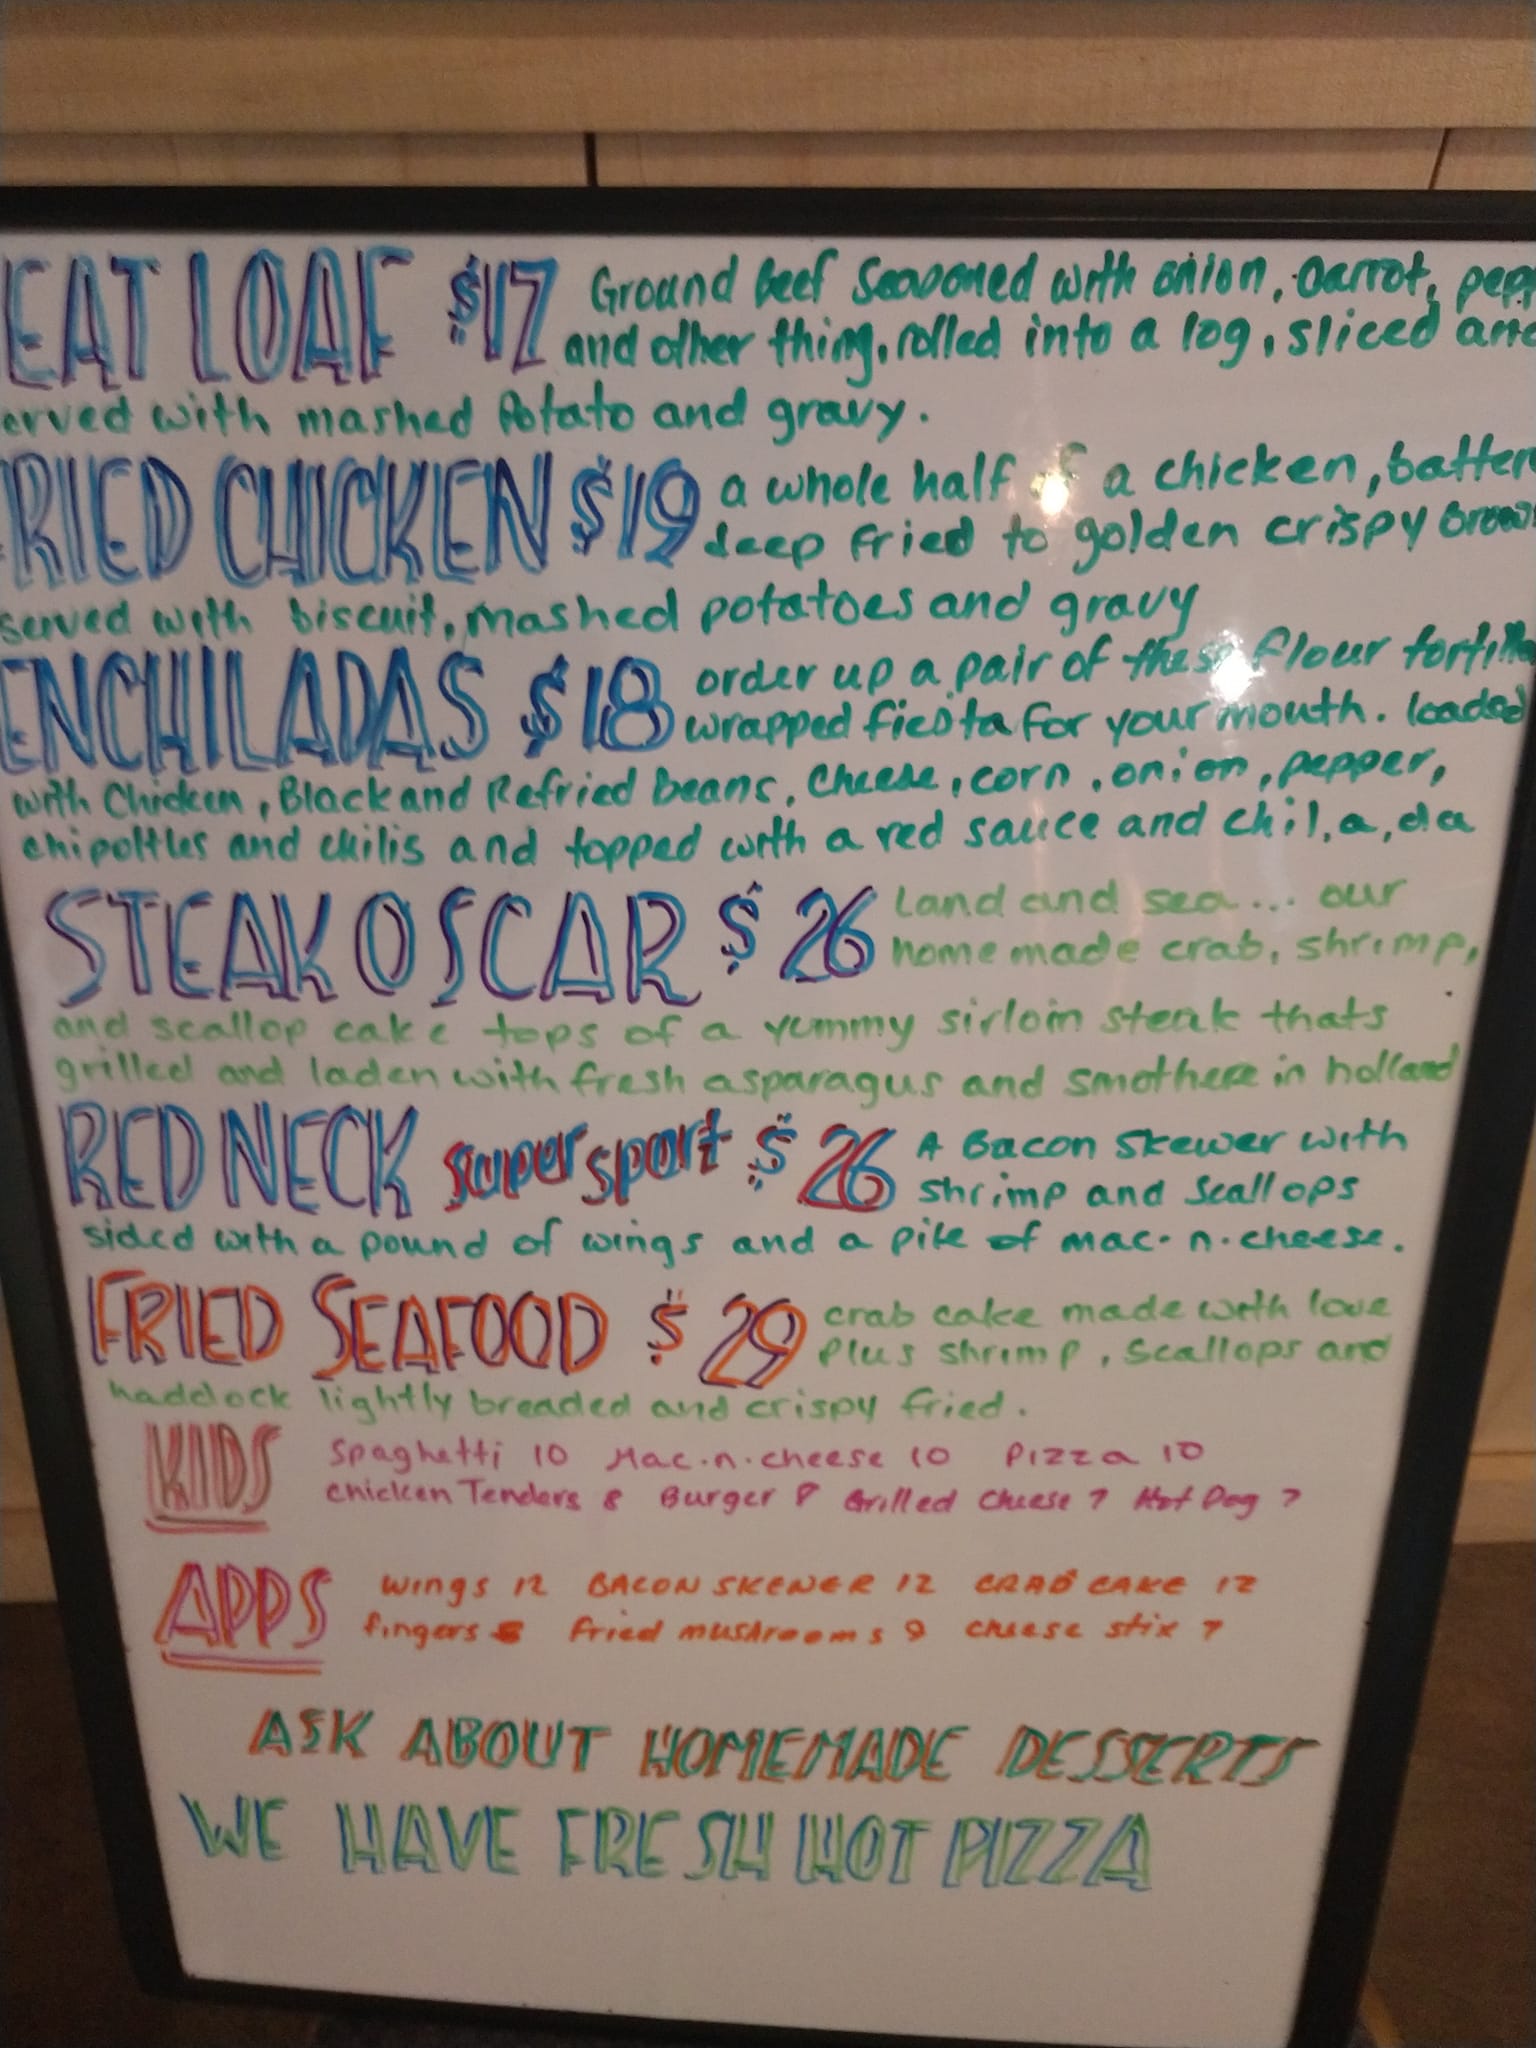 EAT LOAF $17 Ground beef seasoned with onion, carrot, pepp
and other thing, rolled into a log, sliced and
erved with mashed Potato and gravy.
RIED CHICKEN $19 a whole half of a chicken, batter
deep fried to golden crispy brown
served with biscuit, mashed potatoes and gravy
ENCHILADAS $18 order up a pair of these flour tortilla
wrapped fiesta for your mouth. loaded
with Chicken, Black and Refried beans, Cheese, corn, onion, pepper,
chipoltles and chilis and topped with a red sauce and chil, a, da
STEAK OSCAR $26 Land and sea... our
home made crab, shrimp,
and scallop cake tops of a yummy sirloin steak thats
grilled and laden with fresh asparagus and smothere in holland
RED NECK super sport $26 A Bacon Skewer with
shrimp and Scallops
sided with a pound of wings and a pile of mac.n.cheese.
FRIED SEAFOOD $29 crab cake made with love
Plus shrimp, Scallops and
haddock lightly breaded and crispy fried.
KIDS Spaghetti 10 Mac.n.cheese 10 Pizza 10
chicken Tenders 8 Burger 8 Grilled Cheese 7 Hot Dog 7
APPS Wings 12 BACON SKEWER 12 CRAB CAKE 12
fingers 8 fried mushrooms 9 cheese stix 7
ASK ABOUT HOMEMADE DESSERTS
WE HAVE FRESH HOT PIZZA